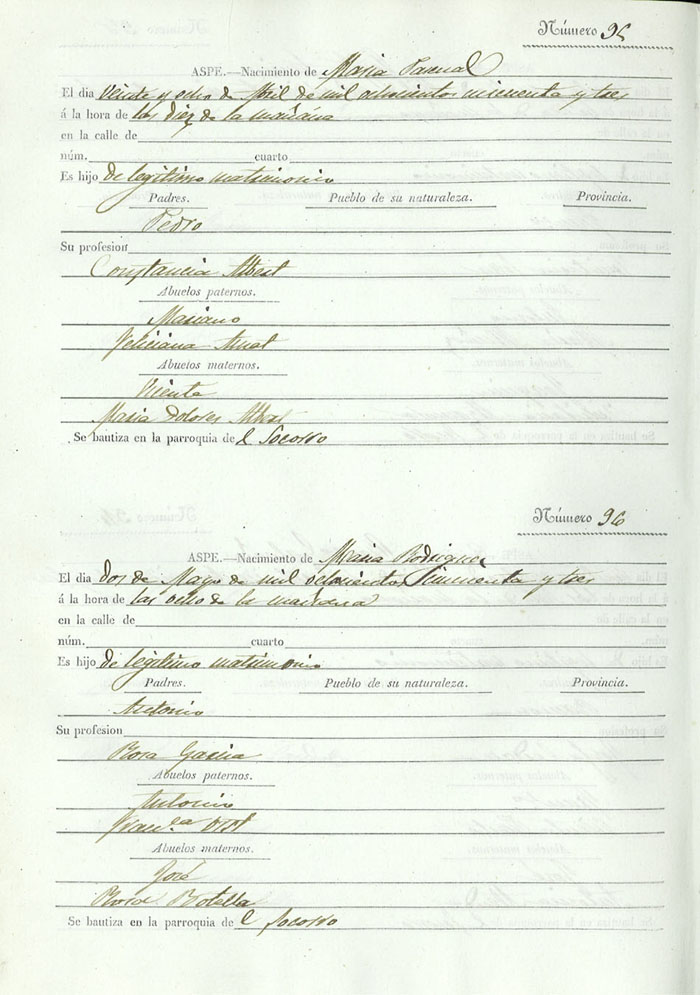 Número 95
ASPE.—Nacimiento de Maria Pascual
El dia veinte y ocho de Abril de mil ochocientos cincuenta y tres
á la hora de las diez de la mañana
en la calle de
núm. cuarto
Es hijo de legitimo matrimonio
Padres. Pueblo de su naturaleza. Provincia.
Pedro
Su profesion
Constancia Albert
Abuelos paternos.
Mariano
Feliciana
Abuelos maternos.
Vicente
Maria Dolores
Se bautiza en la parroquia del Socorro
Número 96
ASPE.—Nacimiento de Maria Rodriguez
El dia dos de Mayo de mil ochocientos cincuenta y tres
á la hora de las ocho de la mañana
en la calle de
núm. cuarto
Es hijo de legitimo matrimonio
Padres. Pueblo de su naturaleza. Provincia.
Antonio
Su profesion
Rosa Garcia
Abuelos paternos.
Antonio
Fran.ca
Abuelos maternos.
José
Rosa Botella
Se bautiza en la parroquia del Socorro